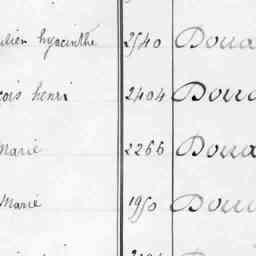 ulien hyacinthe 2540 Doua
çois henri 2404 Doua
Marie 2266 Doua
Marie 1950 Doua